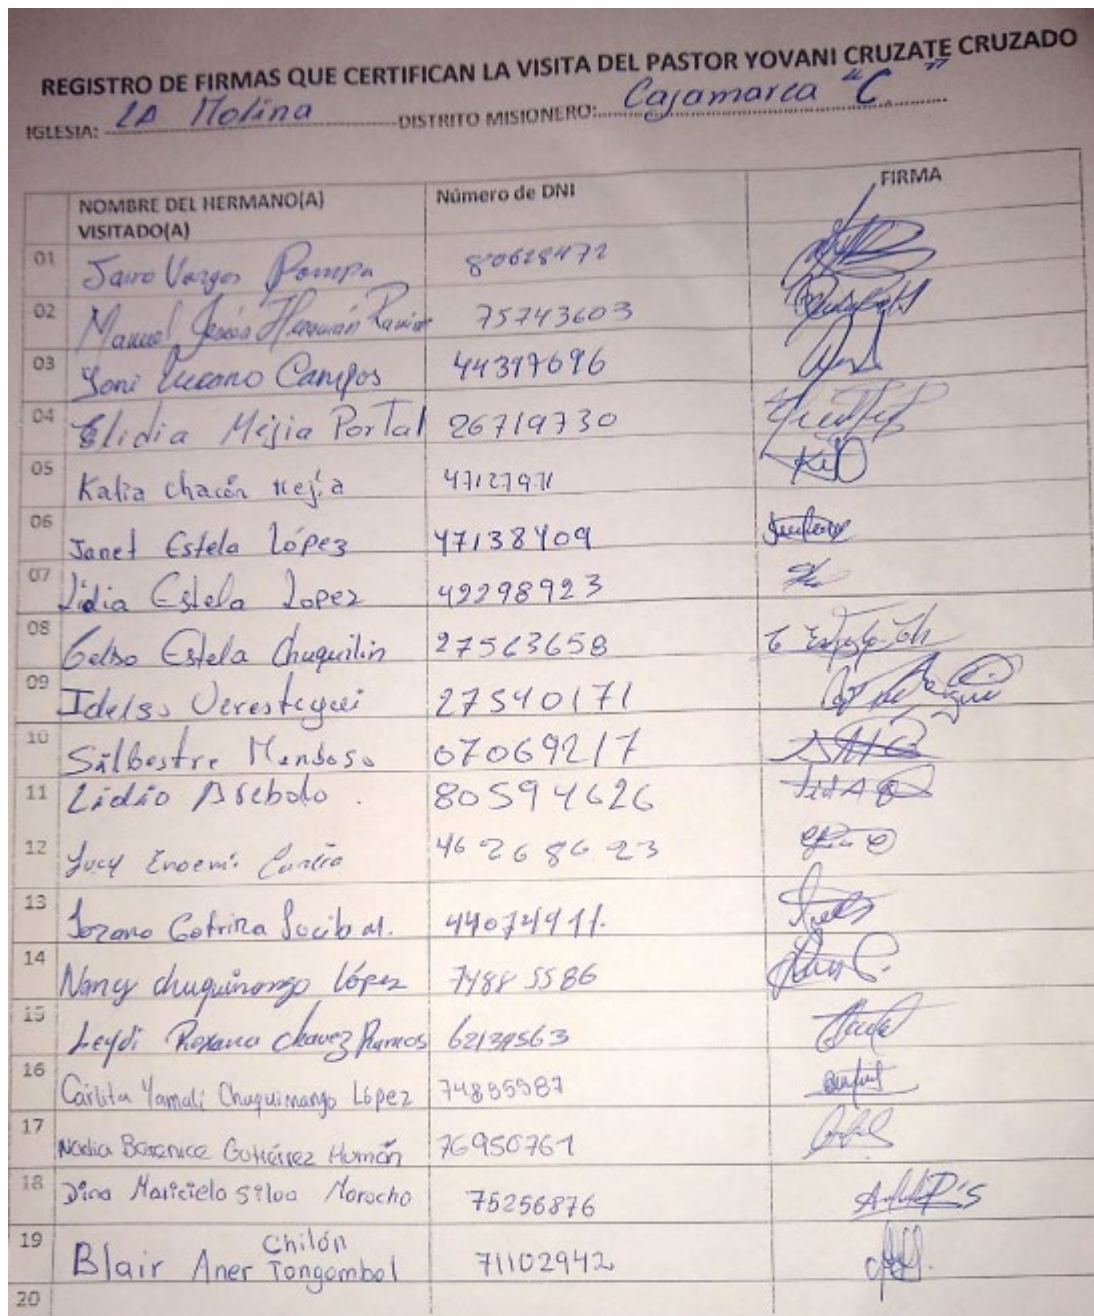 REGISTRO DE FIRMAS QUE CERTIFICAN LA VISITA DEL PASTOR YOVANI CRUZATE CRUZADO
IGLESIA: LA Molina DISTRITO MISIONERO: Cajamarca "C"
NOMBRE DEL HERMANO(A) VISITADO(A) Número de DNI FIRMA
01 Jairo Vargas Pompa 80628472
02 Manuel Jesús Huamán Ramirez 75743603
03 Yoni Lucano Campos 44397696
04 Elidia Mejia Portal 26719730
05 Kalia Chacón Mejía 47127971
06 Janet Estela López 47138409
07 Lidia Estela Lopez 42298923
08 Gelso Estela Chuquilin 27563658
09 Idelso Verastegui 27540171
10 Silbestre Mendoso 07069217
11 Lidio Arebolo 80594626
12 Lucy Enoemi 46268623
13 Lozano Cotrina 44074911.
14 Nancy Chuquimango López 74885586
15 Leydi Roxana Chavez Ramos 62139563
16 Carlita Yamali Chuquimango López 74885587
17 Nadia Berenice Gutiérrez Humán 76950761
18 Dina Maricielo Silva Morocho 75256876
19 Blair Aner Chilón Tongombol 71102942
20